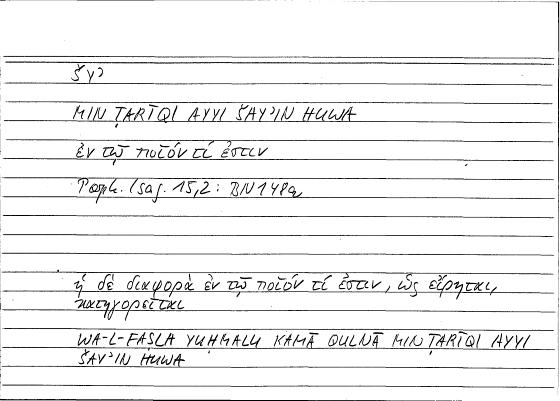 šyʾ
MIN ṬARĪQI AYYI ŠAYʾIN HUWA
ἐν τῷ ποῖόν τί ἐστιν
Porph. Isag. 15,2: BN 148a
ἡ δὲ διαφορὰ ἐν τῷ ποῖόν τί ἐστιν, ὡς εἴρηται,
κατηγορεῖται
WA-L-FAṢLA YUḤMALU KAMĀ QULNĀ MIN ṬARĪQI AYYI
ŠAYʾIN HUWA